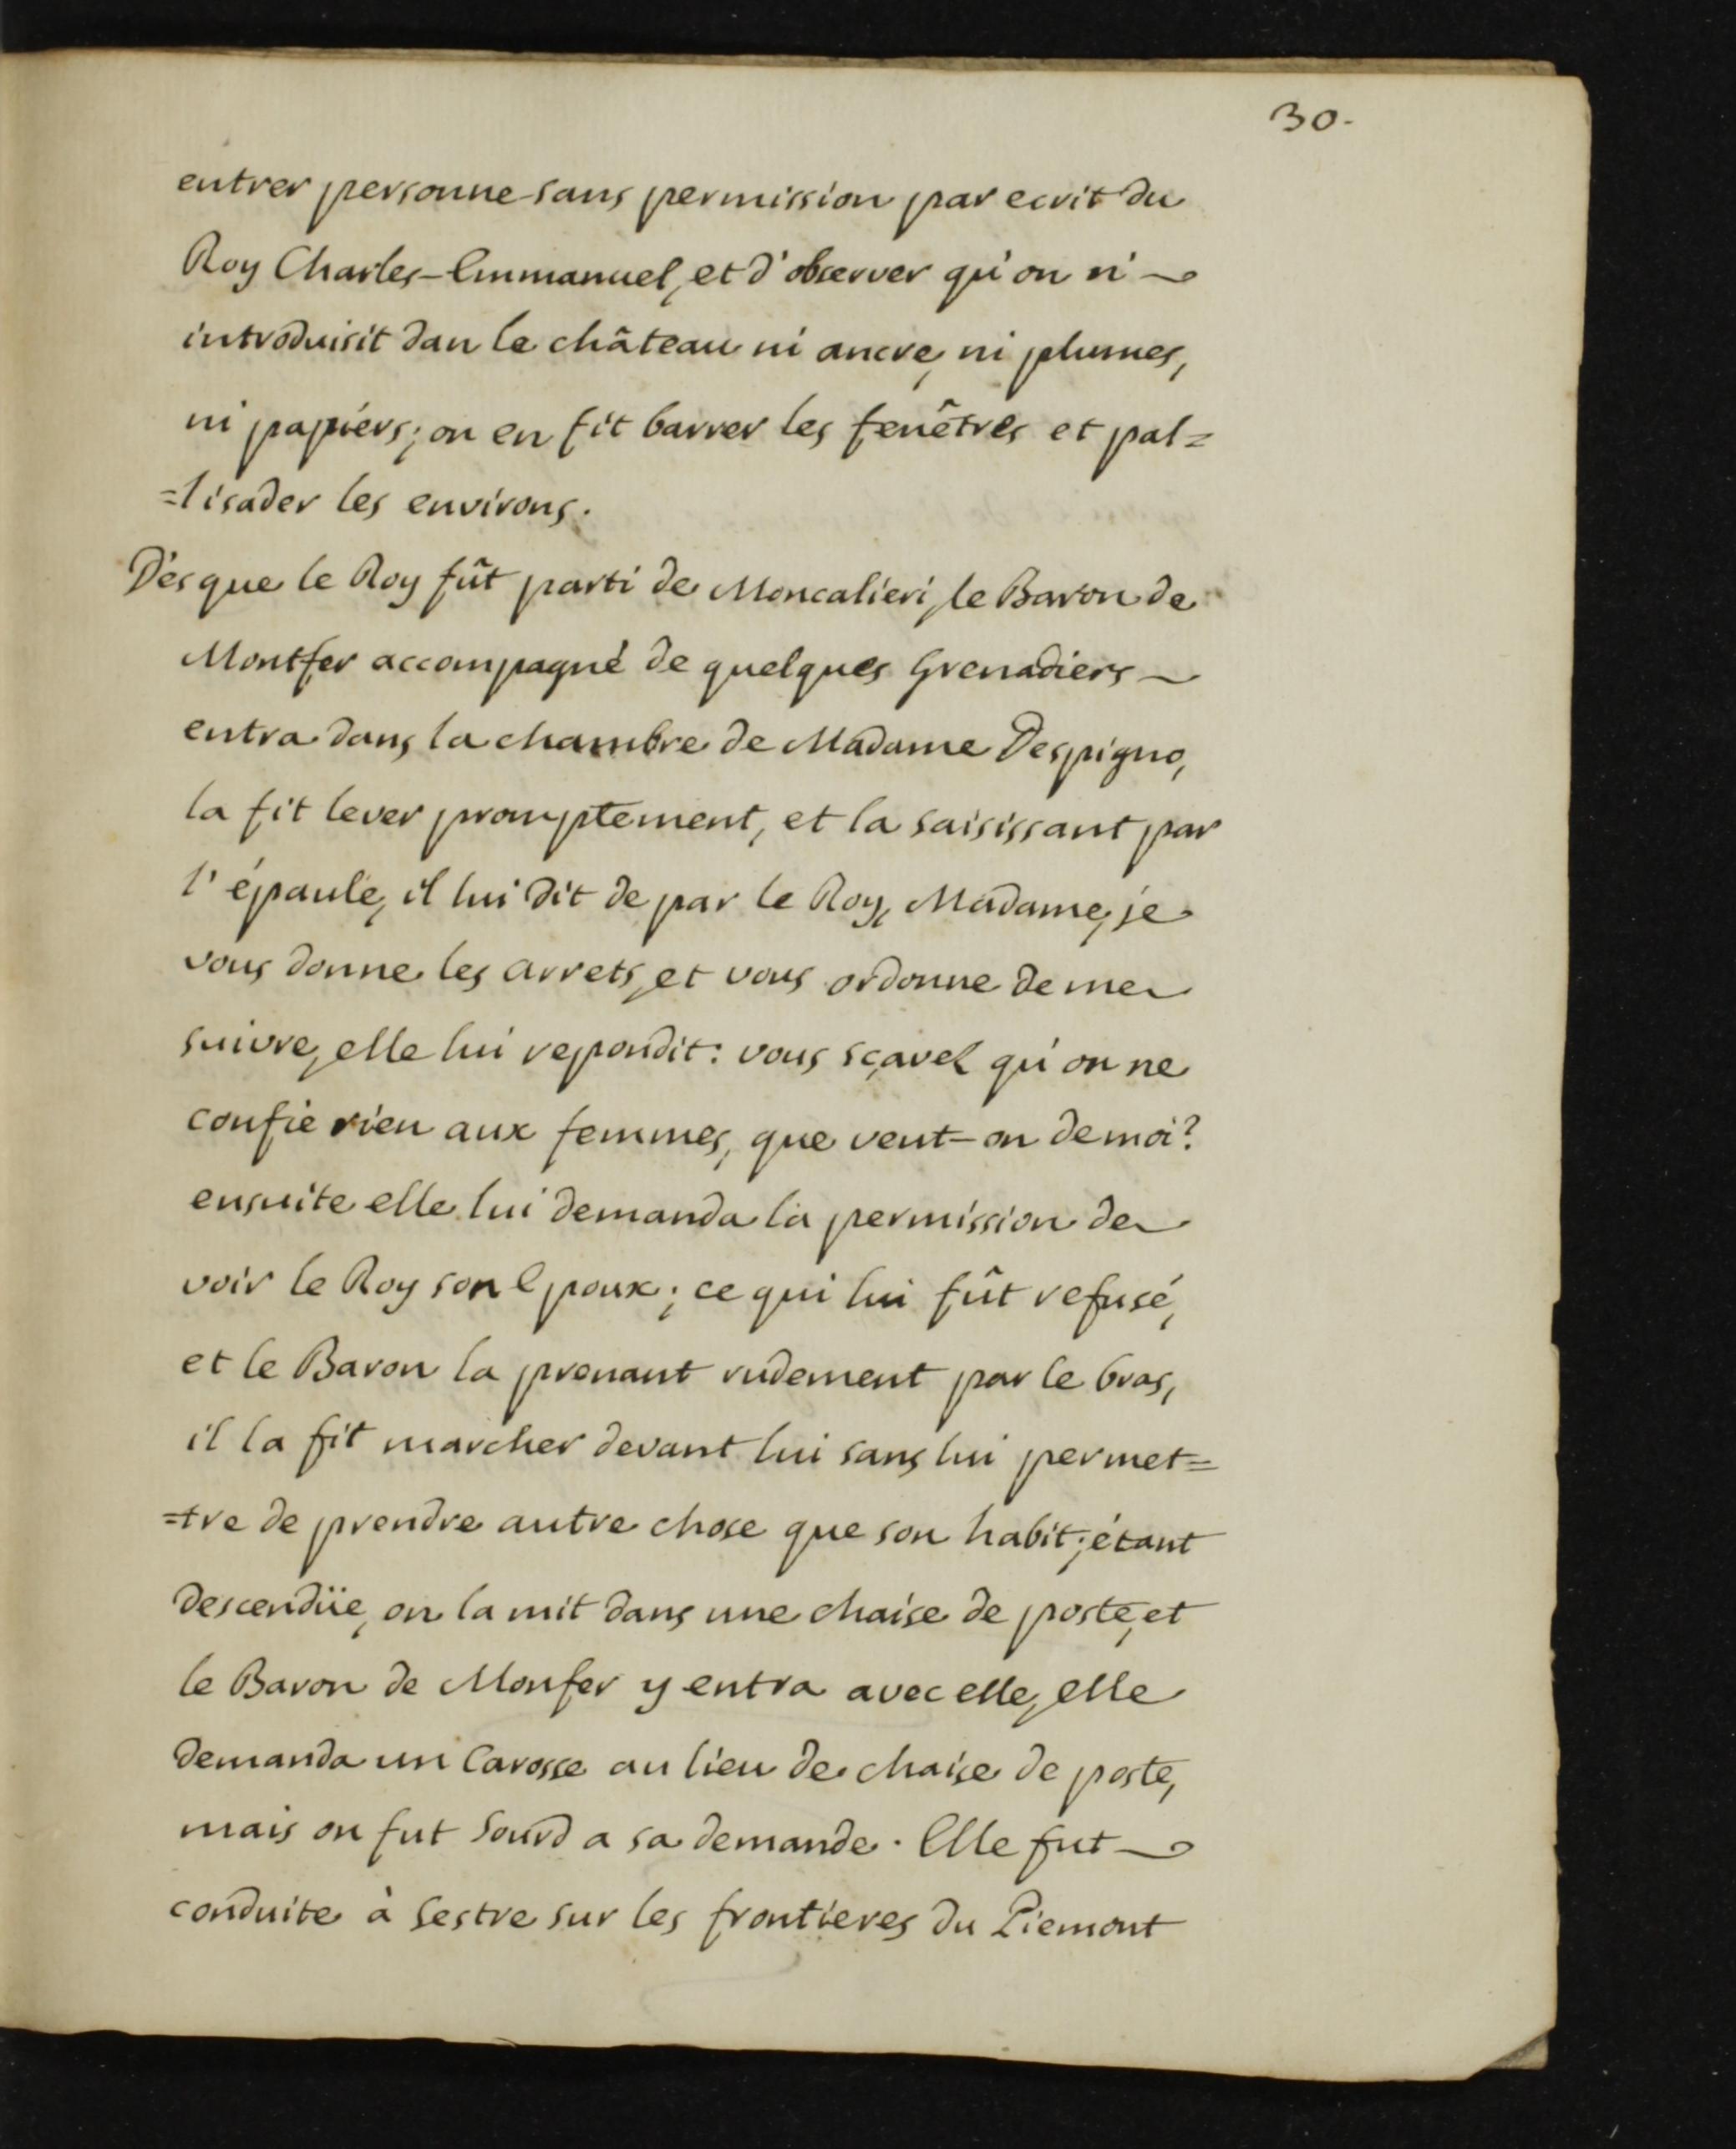 30.
entrer personne sans permission par ecrit du
Roy Charles-Emmanuel, et d'observer qu'on n'
introduisit dan le château ni ancre, ni plumes,
ni papiérs; on en fit barrer les fenêtres et pal=
=lisader les environs.
Dès que le Roy fût parti de Moncaliéri, le Baron de
Montfer accompagné de quelques Grenadiers
entra dans la chambre de Madame Despigno,
la fit lever promptement, et la saisissant par
l'épaule, il lui dit de par le Roy, Madame, je
vous donne les arrets, et vous ordonne de me
suivre, elle lui repondit: vous sçavez qu'on ne
confie rien aux femmes, que veut-on de moi?
ensuite elle lui demanda la permission de
voir le Roy son Epoux; ce qui lui fût refusé,
et le Baron la prenant rudement par le bras,
il la fit marcher devant lui sans lui permet=
=tre de prendre autre chose que son habit; étant
descendüe, on la mit dans une chaise de poste, et
le Baron de Monfer y entra avec elle, elle
demanda un Carosse au lieu de chaise de poste,
mais on fut sourd a sa demande. Elle fut
conduite à Sestre sur les frontieres du Piemont